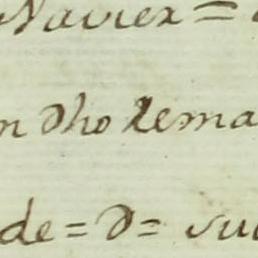 Navier =
n dho Rema
de = d = su